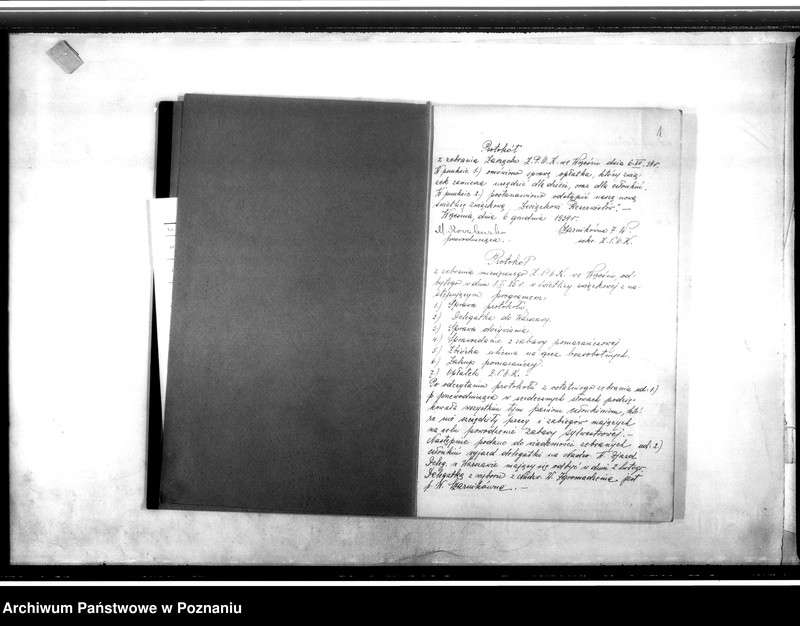 1
Protokół
z zebrania Zarządu Z.P.O.K. we Wrześni dnia 6.XII.38 r.
W punkcie 1) omówiono sprawę opłatka, który zwią-
zek zamierza urządzić dla dzieci, oraz dla członkiń.
W punkcie 2) postanowiono odstąpić naszą nową
świetlicę związkową "Związkowi Rezerwistów". —
Września, dnia 6 grudnia 1938 r.
M.
przewodnicząca.
sekr. Z.P.O.K.
Protokół
z zebrania miesięcznego Z.P.O.K. we Wrześni, od-
bytego w dniu w świetlicy związkowej z na-
stępującym programem:
1.) Sprawa protokołu.
2.) Delegatka do Warszawy.
3.) Sprawa dożywiania.
4.) Sprawozdanie z zabawy pomarańczowej
5.) Zbiórka uliczna na rzecz bezrobotnych.
6.) Zakup pomarańczy.
7.) Opłatek Z.P.O.K. -
Po odczytaniu protokółu z ostatniego zebrania ad. 1)
p. przewodnicząca w serdecznych słowach podzię-
kowała wszystkim tym paniom członkiniom, któ-
re nie szczędziły pracy i zabiegów mających
na celu powodzenie zabawy sylwestrowej. —
Następnie podano do wiadomości zebranych ad. 2)
członkiń wyjazd delegatki na Zjazd
Deleg. w Warszawie mający się odbyć w dniu 2 lutego.
Delegatką z wyboru z Zgromadzenia jest
p. W.
Archiwum Państwowe w Poznaniu